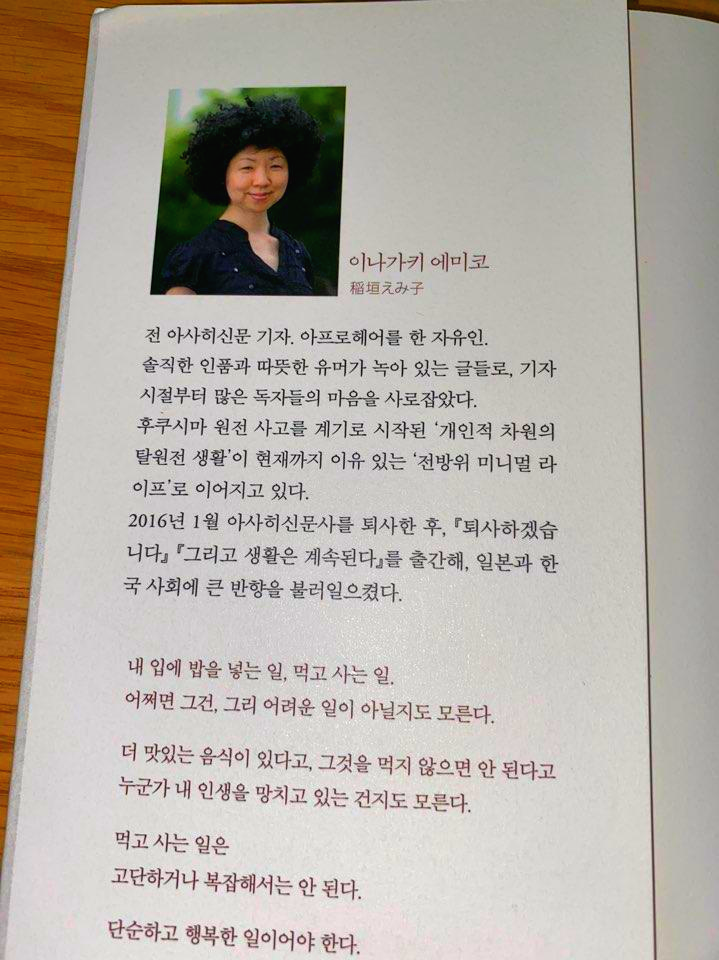 이나가키 에미코
稲垣えみ子
전 아사히신문 기자. 아프로헤어를 한 자유인.
솔직한 인품과 따뜻한 유머가 녹아 있는 글들로, 기자
시절부터 많은 독자들의 마음을 사로잡았다.
후쿠시마 원전 사고를 계기로 시작된 ‘개인적 차원의
탈원전 생활’이 현재까지 이유 있는 ‘전방위 미니멀 라
이프’로 이어지고 있다.
2016년 1월 아사히신문사를 퇴사한 후, 『퇴사하겠습
니다』 『그리고 생활은 계속된다』를 출간해, 일본과 한
국 사회에 큰 반향을 불러일으켰다.
내 입에 밥을 넣는 일, 먹고 사는 일.
어쩌면 그건, 그리 어려운 일이 아닐지도 모른다.
더 맛있는 음식이 있다고, 그것을 먹지 않으면 안 된다고
누군가 내 인생을 망치고 있는 건지도 모른다.
먹고 사는 일은
고단하거나 복잡해서는 안 된다.
단순하고 행복한 일이어야 한다.